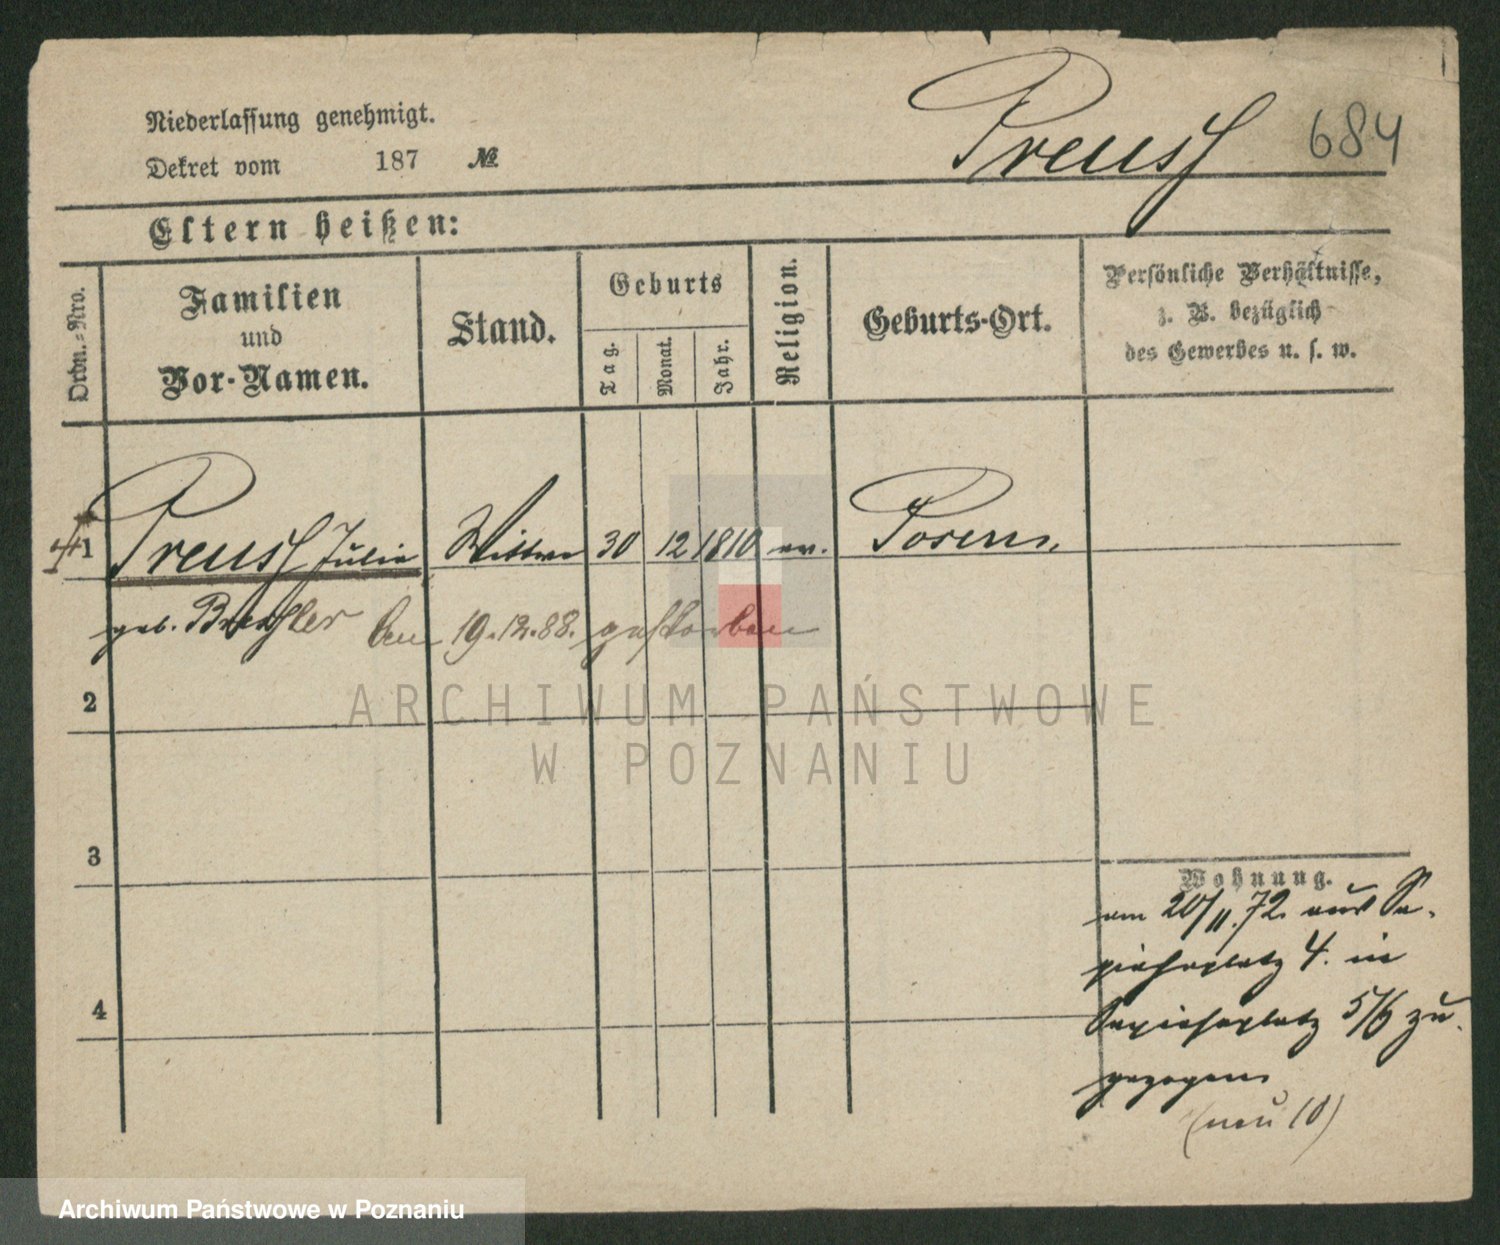 Niederlassung genehmigt.
Preuss
684
Dekret vom 187 №
Eltern heißen:
Ordn.-Nro.
Familien
und
Vor-Namen.
Stand.
Geburts
Tag.
Monat.
Jahr.
Religion.
Geburts-Ort.
Persönliche Verhältnisse,
z. B. bezüglich
des Gewerbes u. s. w.
1 Preuss Julie Wittwe 30 12 1810 ev. Posen.
geb.
am 19.12.88. gestorben
2
3
4
Wohnung.
am 20/11.72. aus Sa-
piehaplatz 4. in
Sapiehaplatz 5/6 zu-
gezogen
(neu 10)
ARCHIWUM PAŃSTWOWE
W POZNANIU
Archiwum Państwowe w Poznaniu